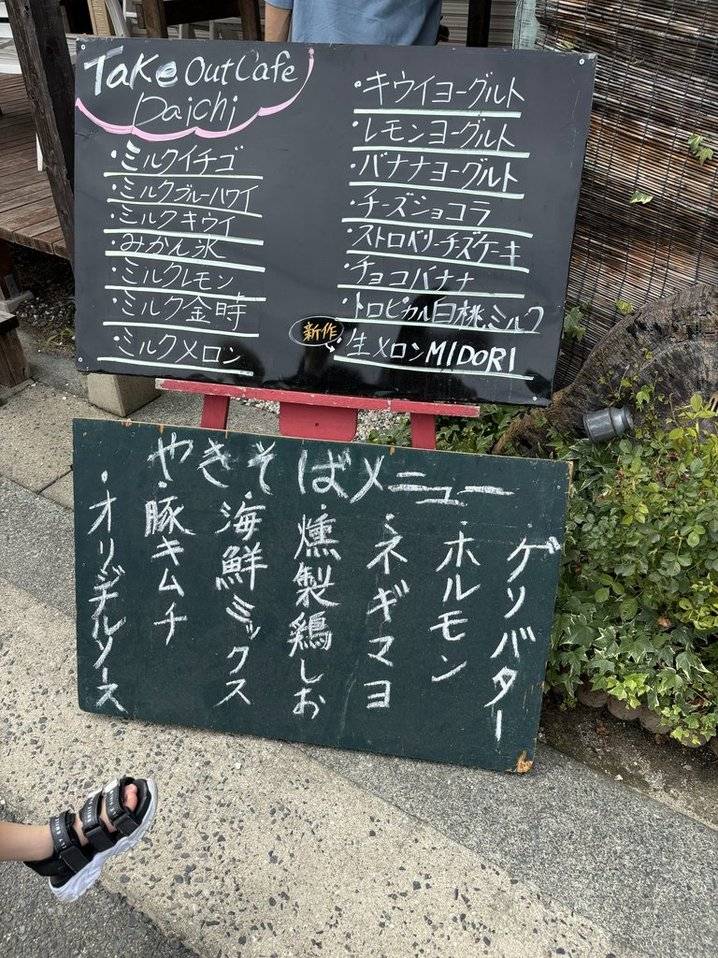 Take Out Cafe
Daichi
・ミルクイチゴ
・ミルクブルーハワイ
・ミルクキウイ
・みかん氷
・ミルクレモン
・ミルク金時
・ミルクメロン
・キウイヨーグルト
・レモンヨーグルト
・バナナヨーグルト
・チーズショコラ
・ストロベリーチーズケーキ
・チョコバナナ
・トロピカル白桃ミルク
新作
・生メロンMIDORI
やきそばメニュー
・ゲソバター
・ホルモン
・ネギマヨ
・燻製鶏しお
・海鮮ミックス
・豚キムチ
・オリジナルソース